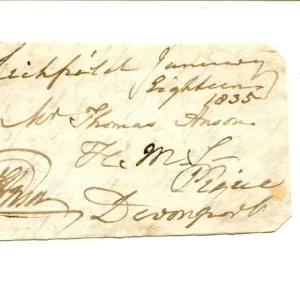 Lichfield January
Eighteen
1835
Mr Thomas Anson
H.M.S
Pique
Devonport